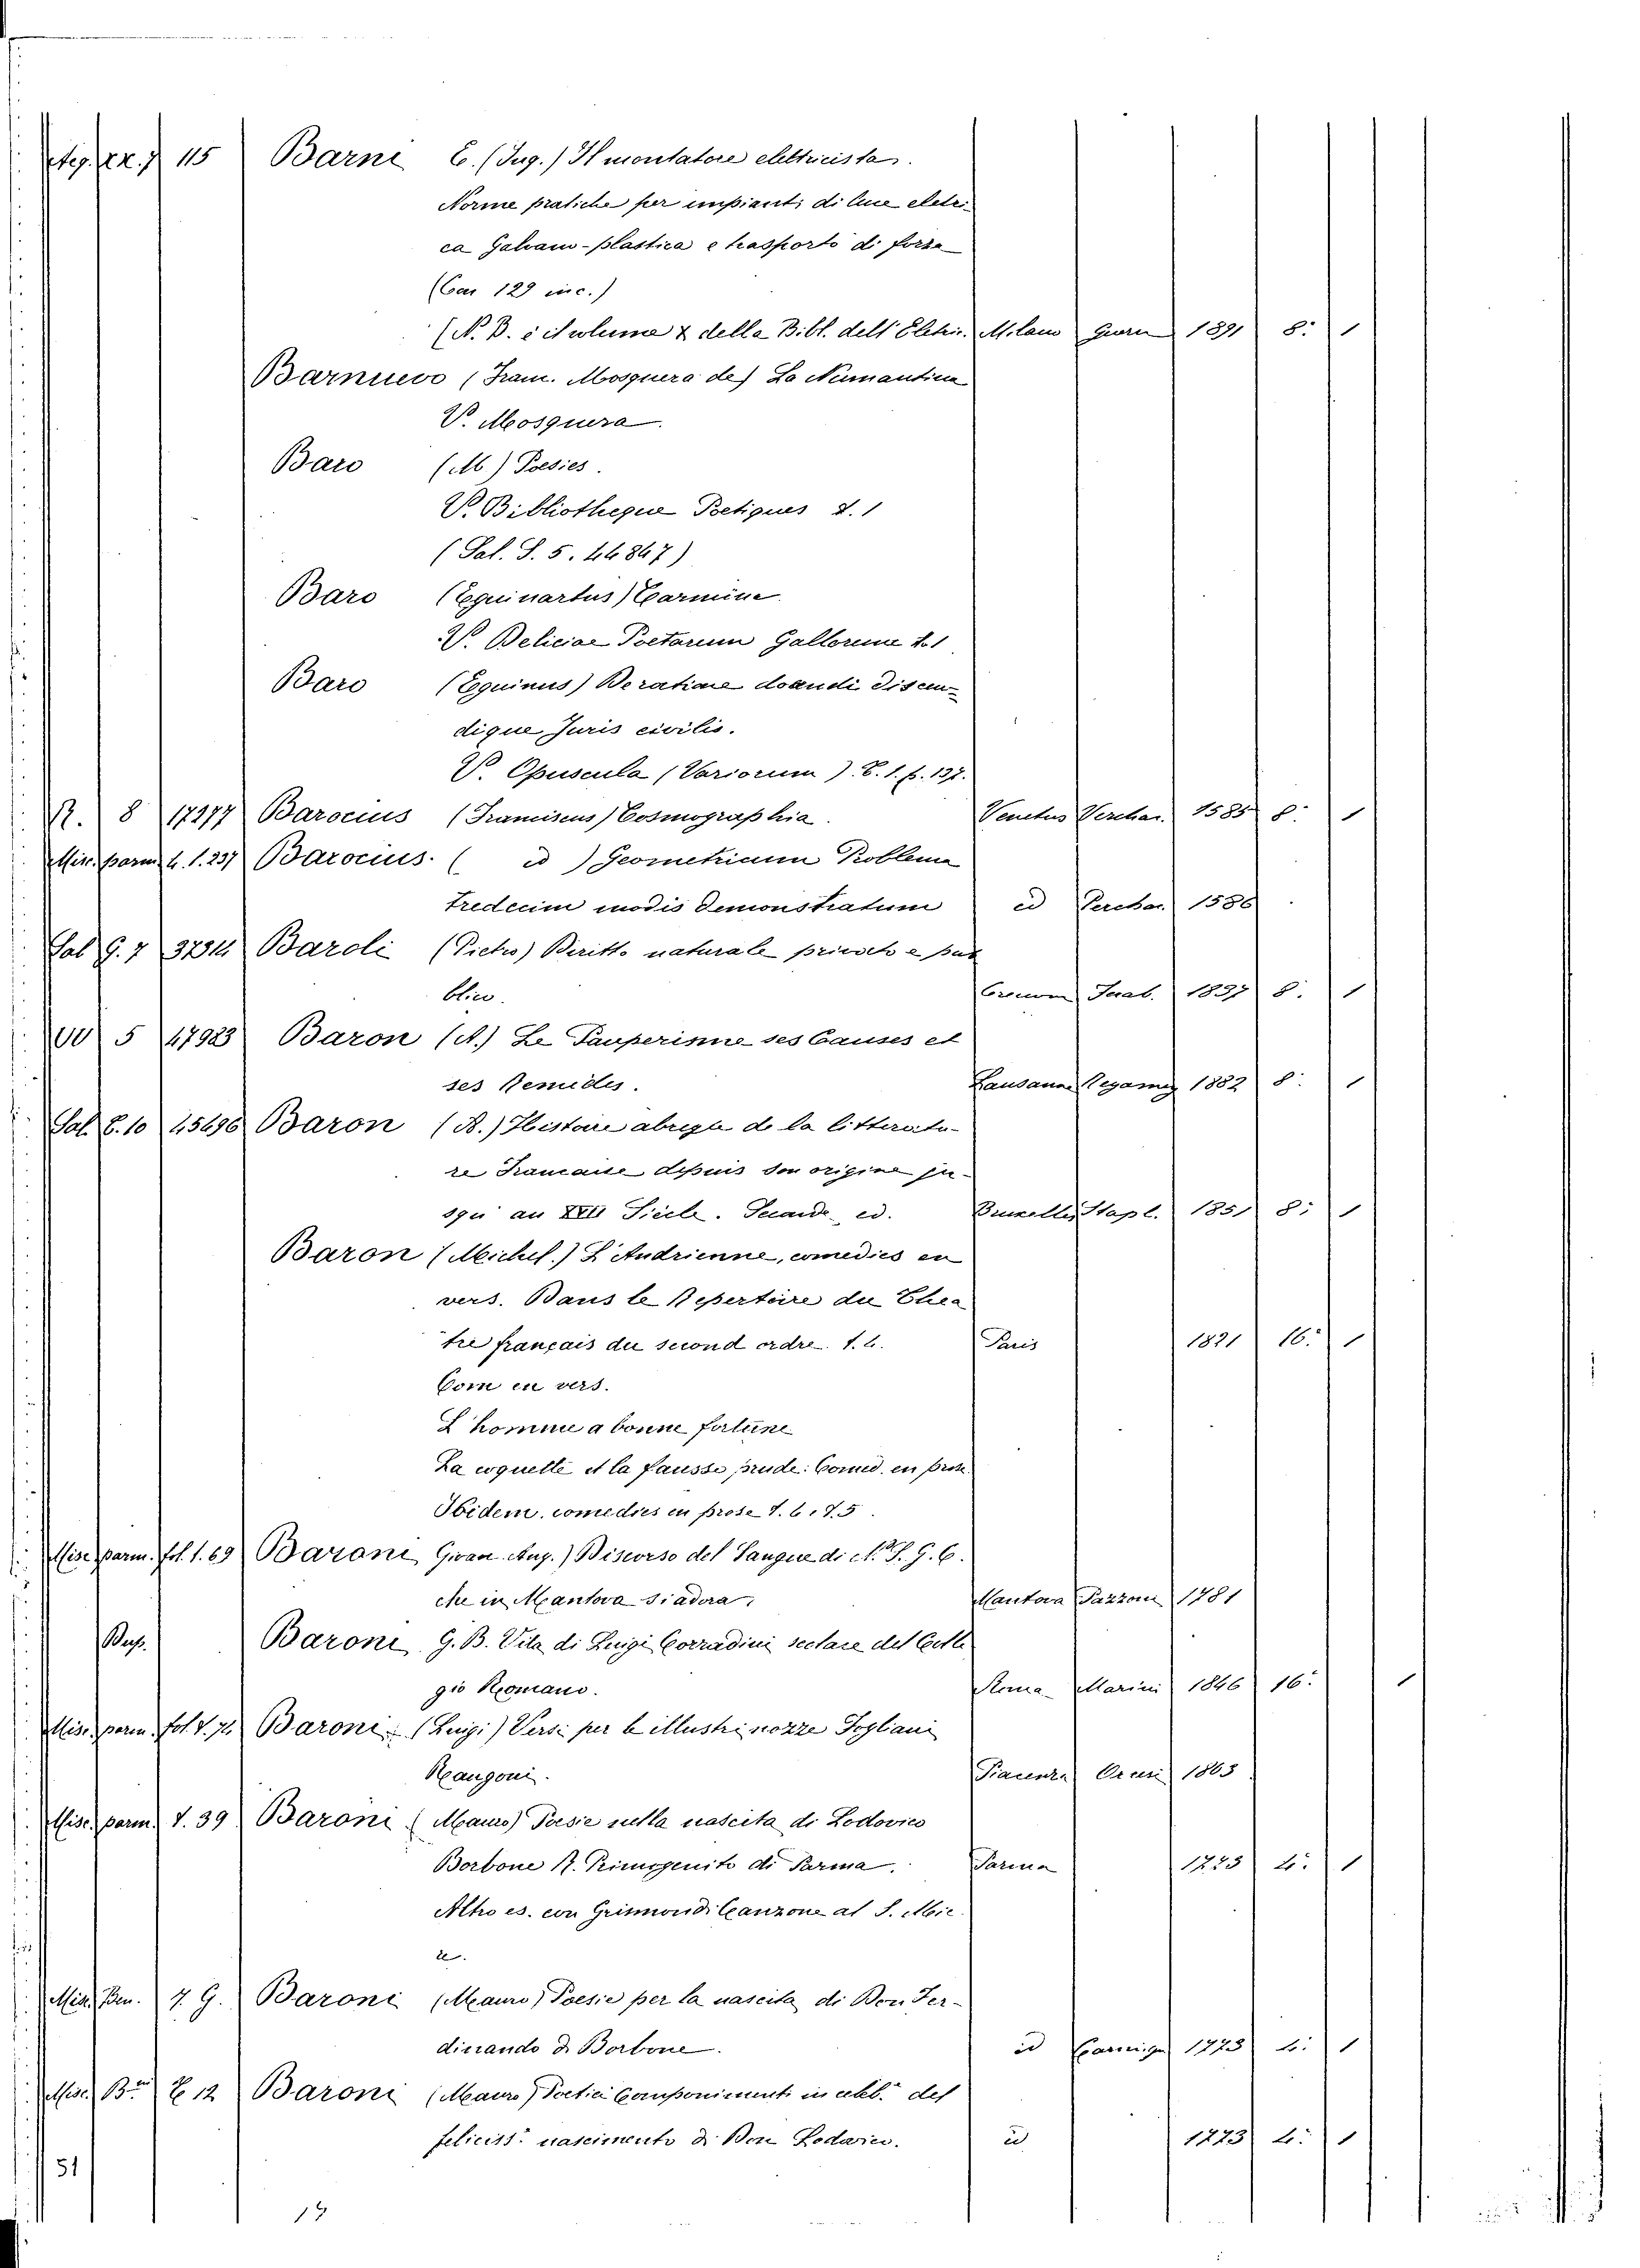 115 Barni E. (Ing.) Il montatore elettricista.
Norme pratiche per impianti di luce elettri-
ca Galvano-plastica e trasporto di forza
(Con 129 inc.)
(N. B. è il volume X della Bibl. dell' Elettri. Milano 1891 8.° 1
Barnuevo (Franc. Mosquera de) La Numantina
V. Mosquera.
Baro (M) Poesies.
V. Bibliotheque Poetiques t. 1
(Sal. S. 5. 44847)
Baro (Eguinartus) Carmine.
V. Deliciae Poetarum Gallorum t. 1
Baro (Eguinus) De ratione docendi discen-
dique Juris civilis.
V. Opuscula (Variorum) T. 1. p. 137.
R. 8 17277 Barocius (Franciscus) Cosmographia. Venetus Perchac. 1585 8.° 1
Misc. parm. 4. 1. 237 Barocius. ( id ) Geometricum Problema
tredecim modis demonstratum id Perchac. 1586
Sal G. 7 37314 Baroli (Pietro) Diritto naturale privato e pub
blico. Cremona 1837 8.° 1
5 47923 Baron (A.) Le Pauperisme ses Causes et
ses Remedes. Lausanne Regamey 1882 8.° 1
Sal. E. 10 45696 Baron (A.) Histoire abregée de la litteratu-
re Francaise depuis son origine ju-
squ' au XVII Siecle. Seconde ed. Bruxelles Stapl. 1851 8.° 1
Baron (Michel.) L'Andrienne, comedies en
vers. Dans le Repertoire du Thea
tre français du second ordre t. 4. Paris 1821 16.° 1
Com en vers.
L'homme a bonne fortune
La coquette et la fausse prude: Comed. en prose
Ibidem. comedies en prose T. 6. 7. 5.
Misc. parm. fol. 1. 69 Baroni Giovan. Aug.) Discorso del Sangue di N. S. G. C.
che in Mantova si adora. Mantova Pazzoni 1781
Baroni G. B. Vita di Luigi Corradini scolare del Colle
gio Romano. Roma Marini 1846 16.° 1
Misc. parm. fol. t. 71. Baroni (Luigi) Versi per le illustri nozze Fogliani
Rangoni. Piacenza Orcesi 1863
Misc. parm. t. 39 Baroni (Mauro) Poesie sulla nascita di Lodovico
Borbone R. Primogenito di Parma. Parma 1773 4.° 1
Altro es. con Grimondi Canzone al S. Mic
Misc. Ben. 7. G. Baroni (Mauro) Poesie per la nascita di Don Fer-
dinando di Borbone. id Carmign. 1773 4.° 1
Misc. B.ni E 12 Baroni (Mauro) Poetici Componimenti in celeb.e del
feliciss.° nascimento di Don Lodovico. id 1773 4.° 1
51